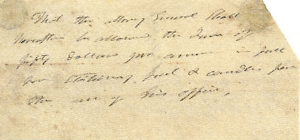 That the Atty General shall
hereafter be allowed the Sum of
fifty Dollars per annum in full
for Stationary, fuel & candles for
the use of his office,